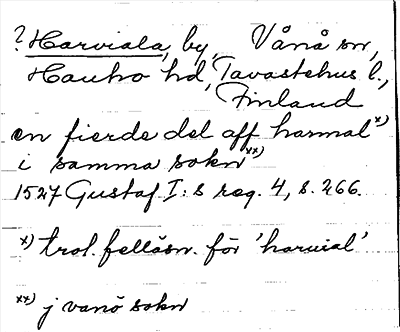 ? Harviala, by, Vånå sn,
Hauho hd, Tavastehus l.,
Finland
en fierde del aff harmal x)
i samma sokn xx)
1527 Gustaf I:s reg. 4, s. 266.
x) trol. felläsn. för 'harvial'
xx) j vanö sokn